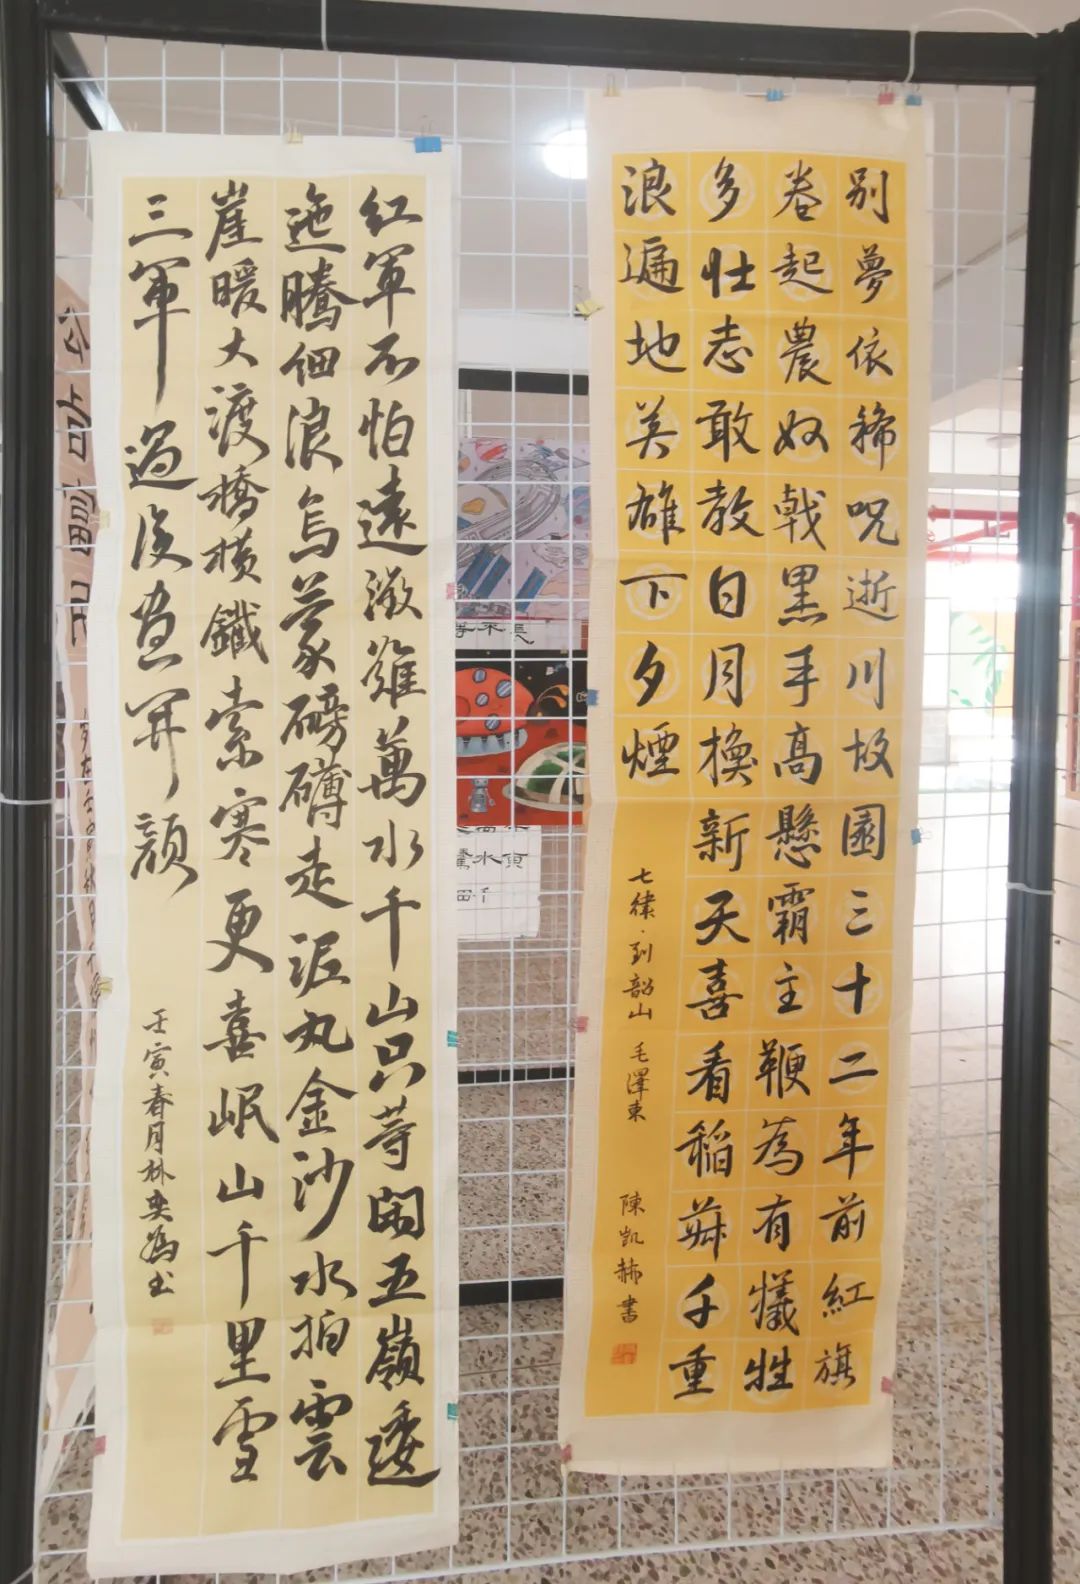 别夢依稀咒逝川故園三十二年前紅旗
卷起農奴戟黑手高懸霸主鞭為有犧牲
多壮志敢教日月換新天喜看稲菽千重
浪遍地英雄下夕煙
七律·到韶山 毛澤東 陳凯赫書
红軍不怕遠徵難萬水千山只等閑五嶺逶
迤騰细浪烏蒙磅礴走泥丸金沙水拍雲
崖暖大渡橋横鐵索寒更喜岷山千里雪
三軍過後盡開顔
壬寅春月林奕為书